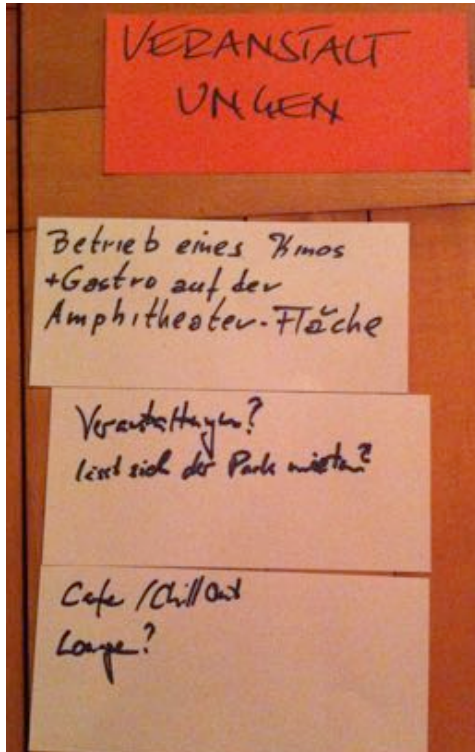 VERANSTALT
UNGEN
Betrieb eines Kinos
+Gastro auf der
Amphitheater-Fläche
Veranstaltungen?
lässt sich der Park mieten?
Cafe / Chill Out
Lounge?